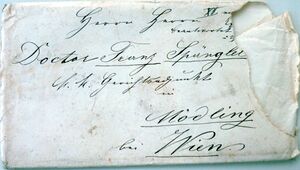 Herrn Herrn
Doctor Franz Spängler
k. k. Gerichtsadjunkt
in
Mödling
bei Wien